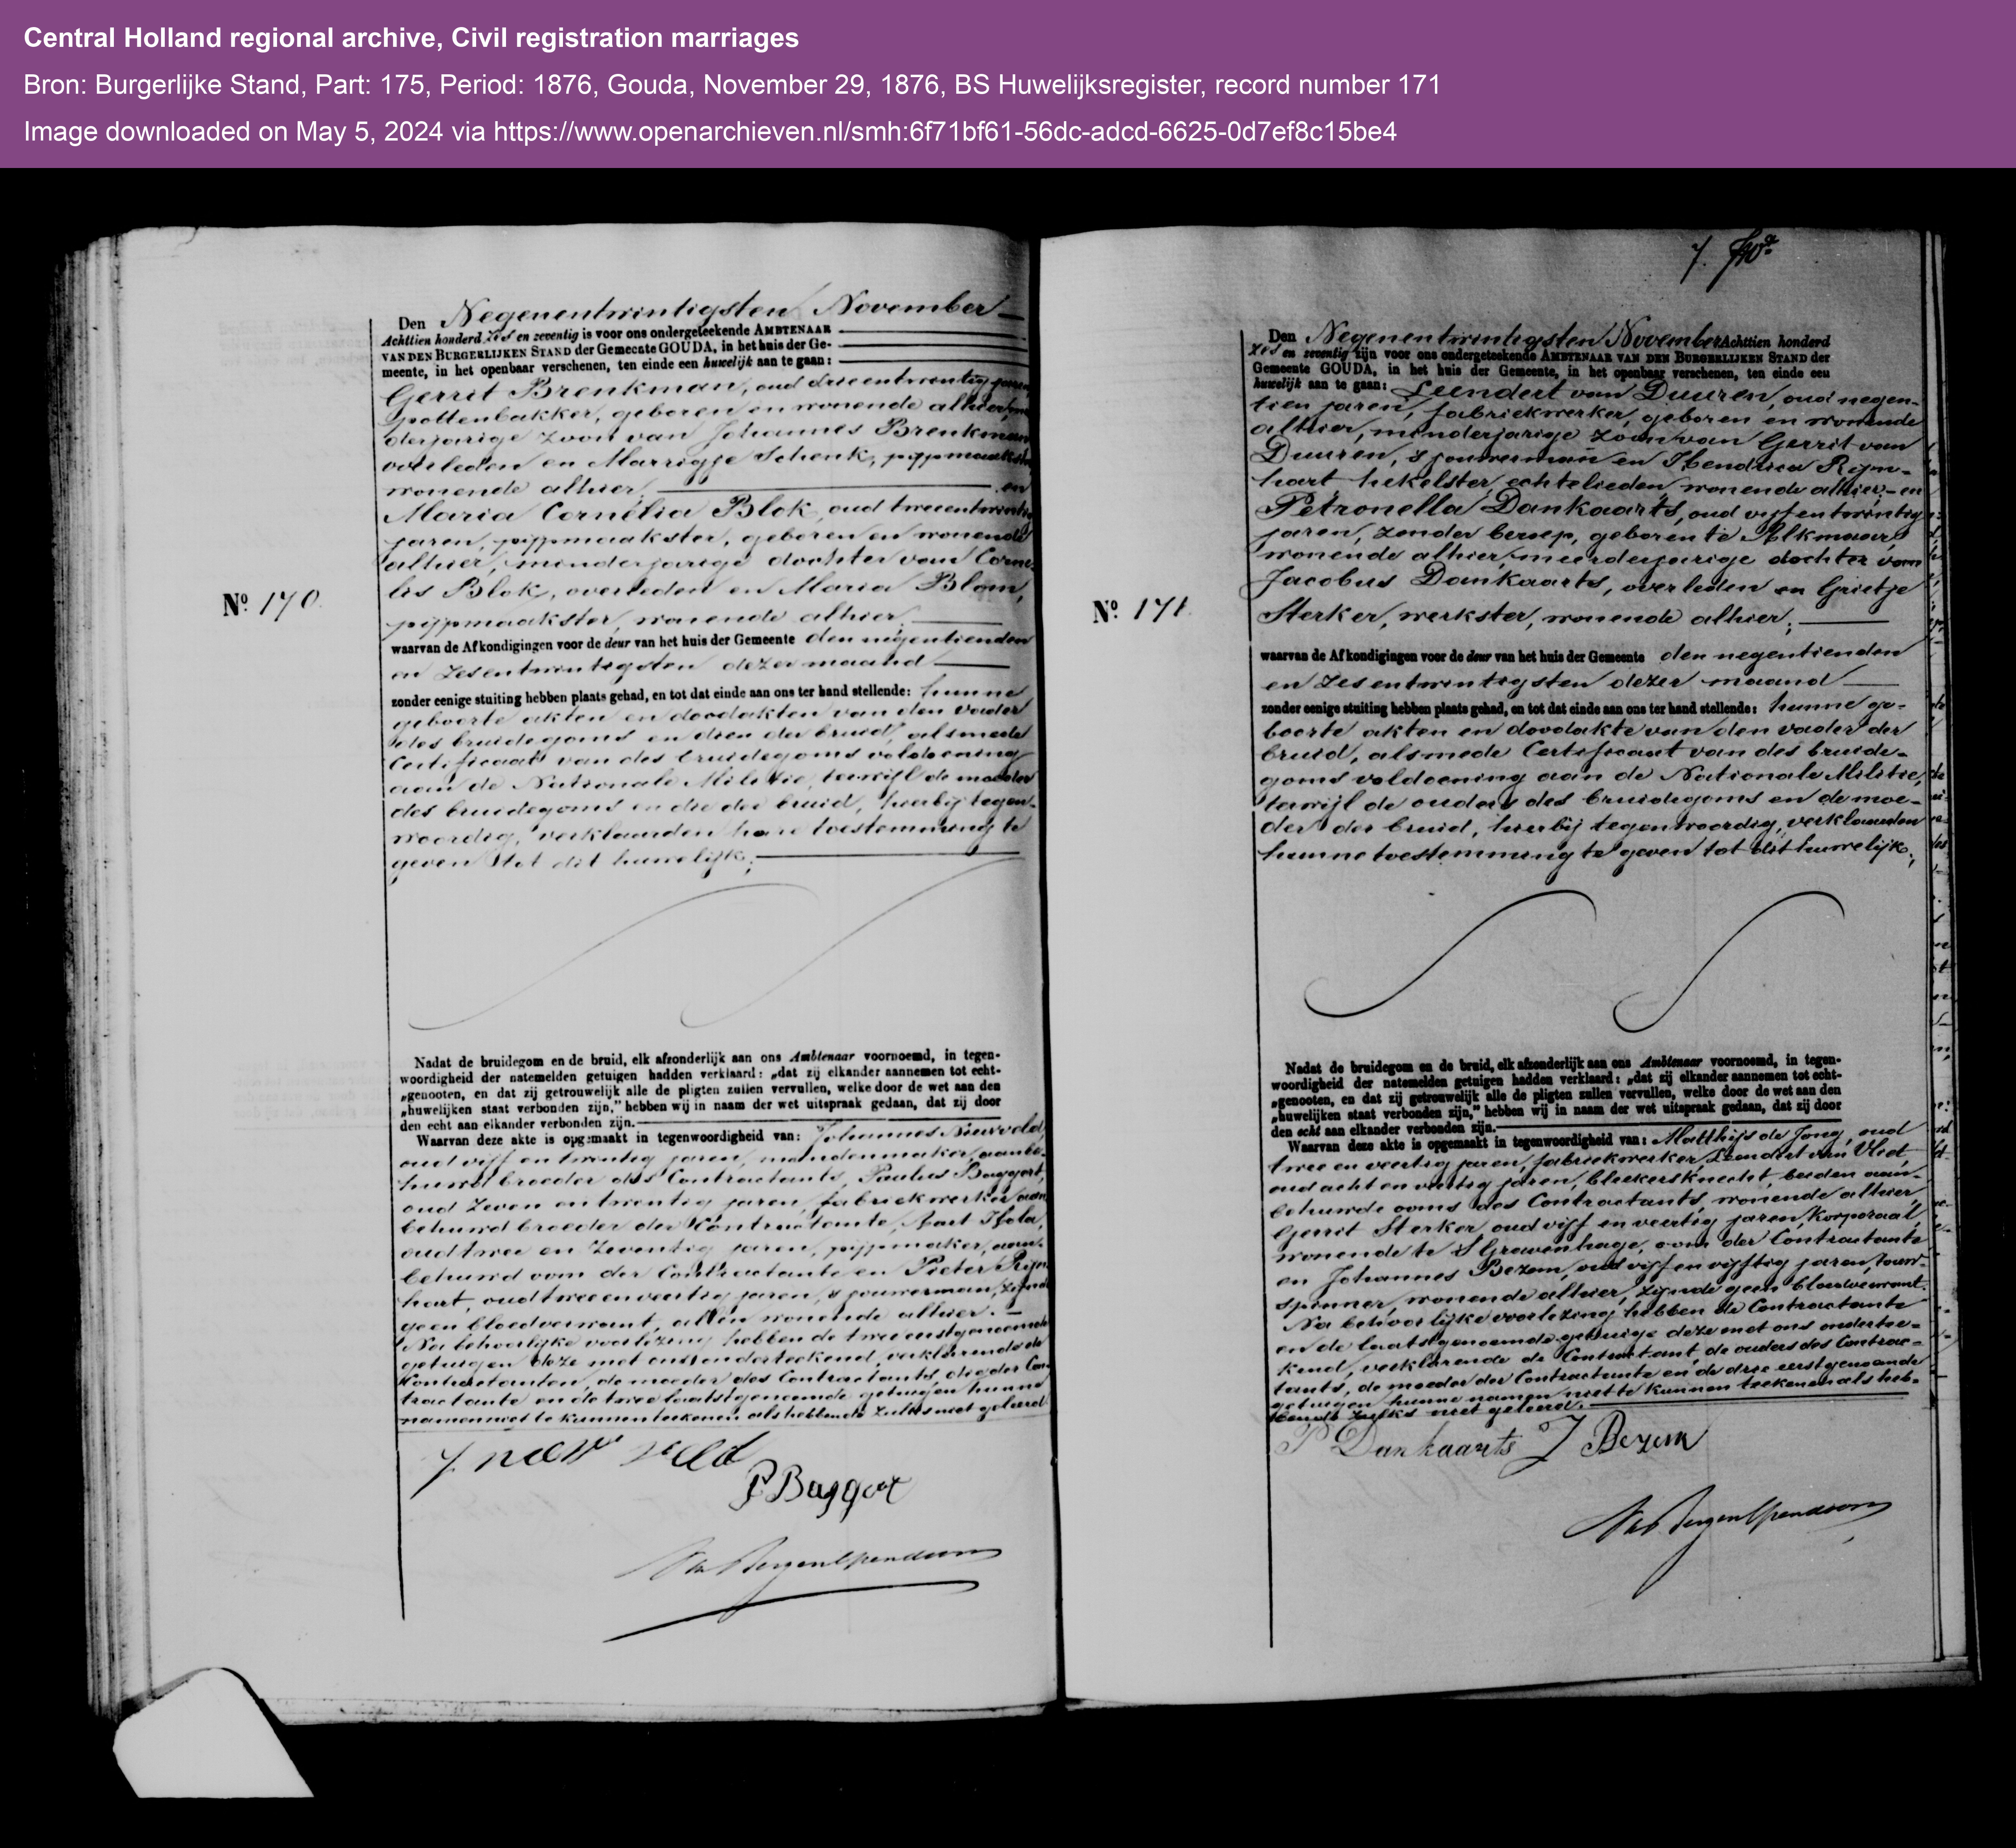 Central Holland regional archive, Civil registration marriages
Bron: Burgerlijke Stand, Part: 175, Period: 1876, Gouda, November 29, 1876, BS Huwelijksregister, record number 171
Image downloaded on May 5, 2024 via https://www.openarchieven.nl/smh:6f71bf61-56dc-adcd-6625-0d7ef8c15be4
Den Negenentwintigsten November
Achttien honderd zes en zeventig is voor ons ondergeteekende AMBTENAAR
VAN DEN BURGERLIJKEN STAND der Gemeente GOUDA, in het huis der Ge-
meente, in het openbaar verschenen, ten einde een huwelijk aan te gaan:
Gerrit Brenkman, oud drieentwintig jaren,
pottenbakker, geboren en wonende alhier,
derjarige zoon van Johannes Brenkman
overleden en Marrigje Schenk, pijpmaakster
wonende alhier, en
Maria Cornelia Blok, oud tweeentwintig
jaren, pijpmaakster, geboren en wonende
alhier, minderjarige dochter van Corne-
lis Blok, overleden en Maria Blom,
pijpmaakster, wonende alhier;
No. 170.
waarvan de Afkondigingen voor de deur van het huis der Gemeente den negentienden
en zesentwintigsten dezer maand
zonder eenige stuiting hebben plaats gehad, en tot dat einde aan ons ter hand stellende: hunne
geboorte akten en doodakten van den vader
des bruidegoms en dien der bruid, alsmede
Certificaat van des bruidegoms voldoening
aan de Nationale Militie, terwijl de moeder
des bruidegoms en die der bruid, hierbij tegen-
woordig, verklaarden hare toestemming te
geven tot dit huwelijk;
Nadat de bruidegom en de bruid, elk afzonderlijk aan ons Ambtenaar voornoemd, in tegen-
woordigheid der natemelden getuigen hadden verklaard: „dat zij elkander aannemen tot echt-
„genooten, en dat zij getrouwelijk alle de pligten zullen vervullen, welke door de wet aan den
„huwelijken staat verbonden zijn,” hebben wij in naam der wet uitspraak gedaan, dat zij door
den echt aan elkander verbonden zijn.
Waarvan deze akte is opgemaakt in tegenwoordigheid van: Johannes Nieuveld,
oud vijf en twintig jaren, mandenmaker, aanbe-
huwd broeder des Contractants, Paulus Baggert,
oud zeven en twintig jaren, fabriekwerker, aan
behuwd broeder der Contractante, Aart
oud twee en zeventig jaren, pijpmaker, aan-
behuwd oom der Contractante en Pieter Rijn-
hart, oud twee en veertig jaren, sjouwerman, zijnde
geen bloedverwant, allen wonende alhier.
Na behoorlijke voorlezing hebben de twee eerstgenoemde
getuigen deze met ons onderteekend, verklarende de
Contractanten, de moeder des Contractants, die der Con-
tractante en de twee laatstgenoemde getuigen hunne
namen niet te kunnen teekenen als hebbende zulks niet geleerd
P Baggert
Den Negenentwintigsten November Achttien honderd
zes en zeventig zijn voor ons ondergeteekende AMBTENAAR VAN DEN BURGERLIJKEN STAND der
Gemeente GOUDA, in het huis der Gemeente, in het openbaar verschenen, ten einde een
huwelijk aan te gaan: Leendert van Duuren, oud negen-
tien jaren, fabriekwerker, geboren en wonende
alhier, minderjarige zoon van Gerrit van
Duuren, sjouwerman en Hendrica Rijn-
hart hekelster, echtelieden, wonende alhier, en
Petronella Dankaarts, oud vijf en twintig
jaren, zonder beroep, geboren te Alkmaar,
wonende alhier, meerderjarige dochter van
Jacobus Dankaarts, overleden en Grietje
Sterker, werkster, wonende alhier;
No. 171.
waarvan de Afkondigingen voor de deur van het huis der Gemeente den negentienden
en zesentwintigsten dezer maand
zonder eenige stuiting hebben plaats gehad, en tot dat einde aan ons ter hand stellende: hunne ge-
boorte akten en doodakte van den vader der
bruid, alsmede Certificaat van des bruide-
goms voldoening aan de Nationale Militie,
terwijl de ouders des bruidegoms en de moe-
der der bruid, hierbij tegenwoordig, verklaarden
hunne toestemming te geven tot dit huwelijk;
Nadat de bruidegom en de bruid, elk afzonderlijk aan ons Ambtenaar voornoemd, in tegen-
woordigheid der natemelden getuigen hadden verklaard: „dat zij elkander aannemen tot echt-
„genooten, en dat zij getrouwelijk alle de pligten zullen vervullen, welke door de wet aan den
„huwelijken staat verbonden zijn,” hebben wij in naam der wet uitspraak gedaan, dat zij door
den echt aan elkander verbonden zijn.
Waarvan deze akte is opgemaakt in tegenwoordigheid van: Matthijs de Jong, oud
twee en veertig jaren, fabriekwerker, Leendert van Vliet,
oud acht en veertig jaren, bleekersknecht, beiden aan-
behuwde ooms des Contractants, wonende alhier,
Gerrit Sterker, oud vijf en veertig jaren, Korporaal,
wonende te s Gravenhage, oom der Contractante
en Johannes Bezem, oud vijf en vijftig jaren, touw-
spinner, wonende alhier, zijnde geen bloedverwant.
Na behoorlijke voorlezing hebben de Contractante
en de laatstgenoemde getuige deze met ons ondertee-
kend, verklarende de Contractant, de ouders des Contrac-
tants, de moeder der Contractante en de drie eerstgenoemde
getuigen hunne namen niet te kunnen teekenen als heb-
bende zulks niet geleerd.
P Dankaarts J Bezem